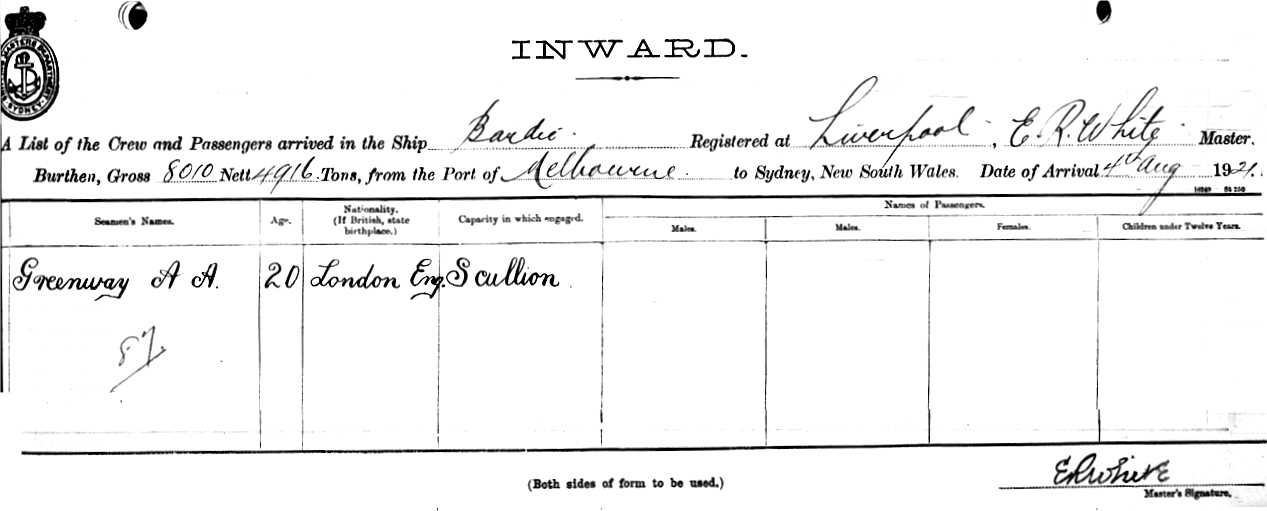 INWARD.
A List of the Crew and Passengers arrived in the Ship Bardic. Registered at Liverpool, E. R. White. Master.
Burthen, Gross 8010 Nett 4916 Tons, from the Port of Melbourne. to Sydney, New South Wales. Date of Arrival 4th Aug 1921.
Seamen's Names. Age. Nationality. (If British, state birthplace.) Capacity in which engaged. Names of Passengers.
Males. Males. Females. Children under Twelve Years.
Greenway A A. 20 London Eng. Scullion
87
(Both sides of form to be used.)
ERWhite
Master's Signature.